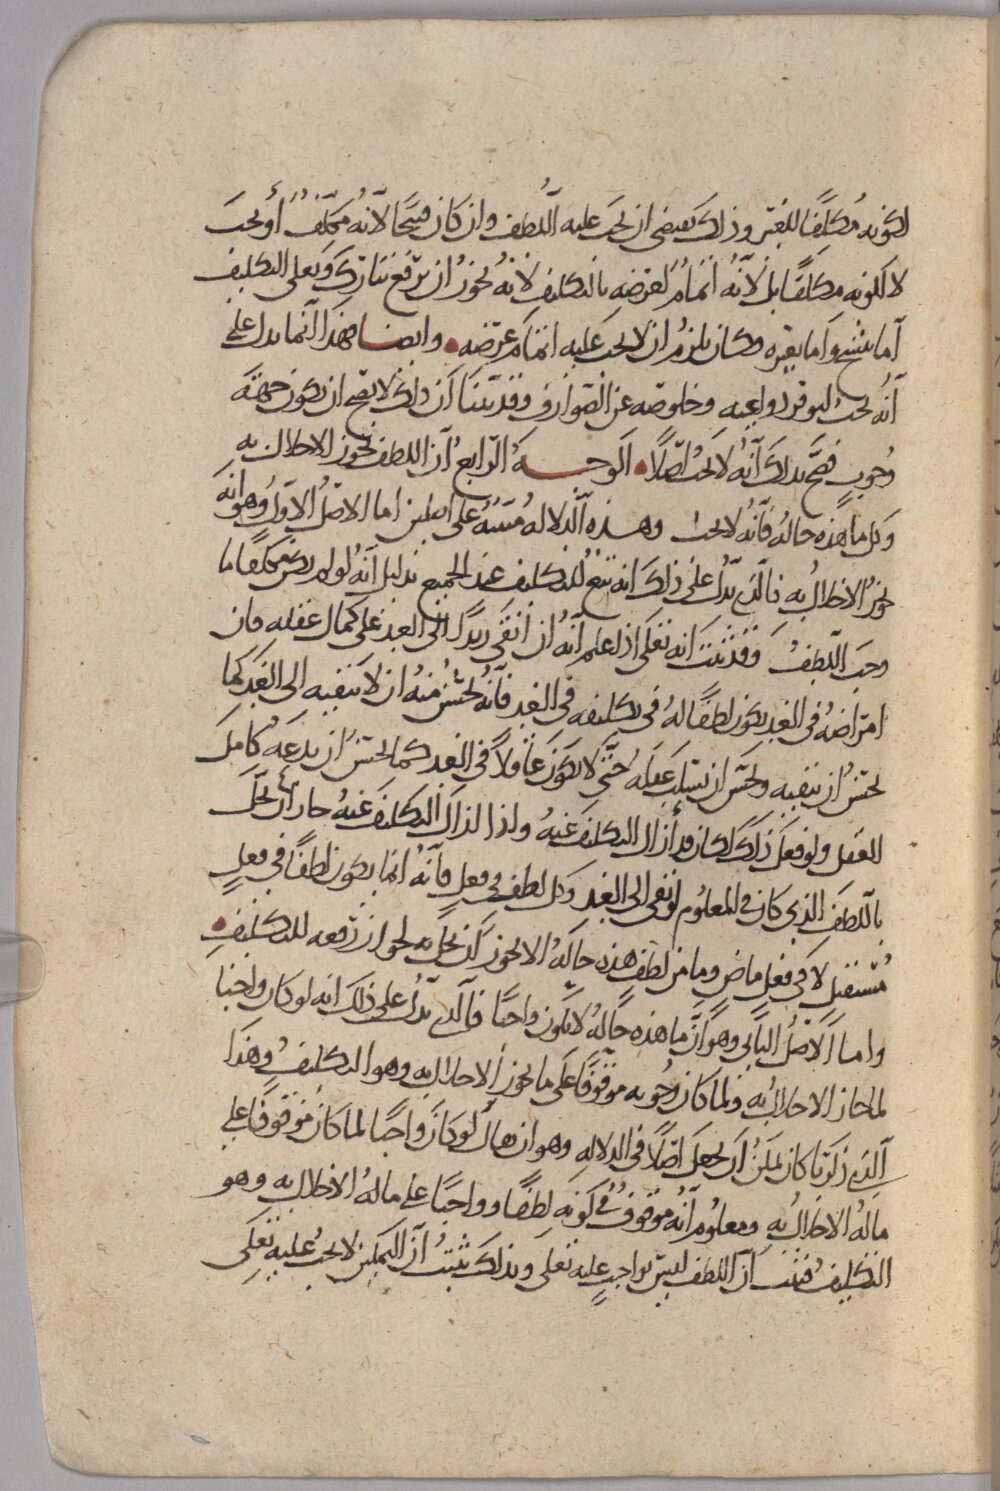 لكونه مكلَّفًا للغير وذلك يقتضي ان يجب عليه اللُّطف وان كان قبيحًا لأنه مكلِّفٌ أو يجب
لا لكونه مكلَّفًا بل لأنَّه اتمامٌ لغرضه بالتكليف لأنه يجوز ان يرتفع بتاركٍ وفعل التكليف
أما بنسخ وأما بغيره وكان يلزم ان لا يجب عليه اتمام غرضه وايضا فهذا انما يدل على
أنه يجب لتوفر دواعيه وخلوصه عن الصوارف وقد بيّنا أن ذلك لا يصح ان يكون جهة
وُجوبٍ فصحّ بذلك أنه لا يجب أصلًا الوجـــهُ الرّابع أن اللطف يجوز الاخلال به
وكل ما هذه حاله فانه لا يجب وهذه الدّلالة مبنيّةٌ على اصلين اما الاصل الأوّل وهو انه
يجوز الاخلال به فالّذي يدُل على ذلك انه تبعٌ للتكليف عند الجميع بدليل أنّه لو لم يكن مكلفًا ما
وجب اللّطفُ وقد ثبت انه تعلى اذا علم أنّه ان أبقى زيدًا الى الغد على كمال عقله فان
امراضهُ في الغد يكون لطفًا لهُ في تكليفه في الغد فأنّه يحسُنُ منهُ ان لا يبقيه الى الغد كما
يحسنُ ان يبقيه ويحسن ان يسلب عقله حتّى لا يكون عاقلًا في الغد كما يحسن ان يدعه كامل
العقل ولو فعل ذلك لكان قد أزال التكليف عنهُ واذا زال التكليف عنهُ جاز أن يخل
باللّطف الذي كان في المعلُوم لو بقي الى الغد وكل لطف في فعلٍ فانّهُ انما يكون لطفًا في فعلٍ
مُستقبلٍ لا في فعلٍ ماضٍ وما من لطف هذه حاله الا يجوز أن يخل به لجواز رفعه للتكليف
واما الأصل الثاني وهو أنّ ما هذه حالُهُ لا يكون واجبًا فالّذي يدُل على ذلك انه لو كان واجبًا
لما جاز الاخلالُ به ولما كان وجُوبه موقُوفًا على ما يجوز الاخلال به وهو التكليفُ وهذا
الّذي ذكرنا كان يمكنُ أن يجعل أصلًا في الدلالة وهو ان يقال لو كان واجبًا لما كان موقوفًا على
ماله الاخلالُ به ومعلُوم أنّه موقوفٌ في كونه لطفًا وواجبًا على ماله الاخلال به وهو
التكليفُ فثبت أن اللطف ليس بواجبٍ عليه تعلى وبذلك يثبتُ أن التمكين لا يجبُ عليه تعلى